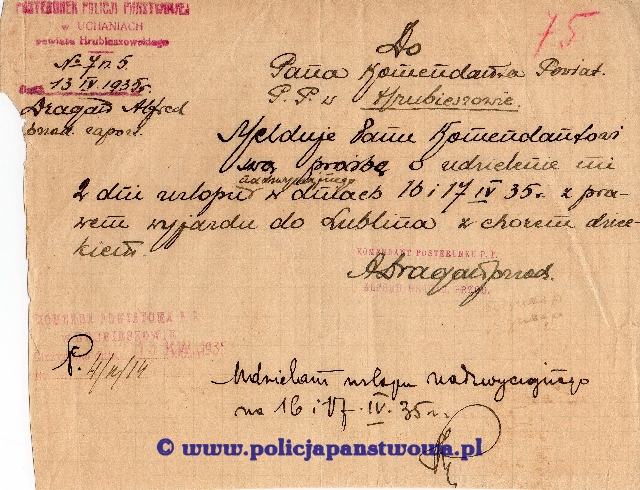 POSTERUNEK POLICJI PAŃSTWOWEJ
w UCHANIACH
powiatu Hrubieszowskiego
№ 7/15
Dnia 13 IV 1935 r.
Dragan Alfred
przod. raport.
75
Do
Pana Komendanta Powiat.
P. P. w Hrubieszowie.
Melduję Panu Komendantowi
swą prośbę o udzielenie mi
nadzwyczajnego
2 dni urlopu w dniach 16 i 17 IV 35 r. z pra-
wem wyjazdu do Lublina z chorem dziec-
kiem.
KOMENDANT POSTERUNKU P. P.
ADragan przod.
KOMENDA POWIATOWA P. P.
1935
P. 4/11/14
Udzielam urlopu nadzwyczajnego
na 16 i 17. IV. 35 r.
© www.policjapanstwowa.pl